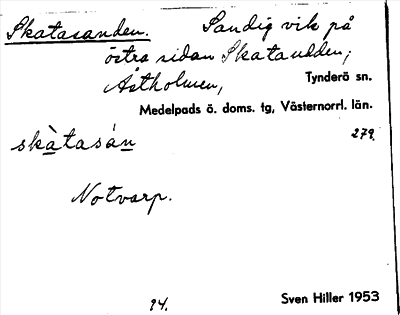 Skatasanden. Sandig vik på
östra sidan Skataudden;
Åstholmen, Tynderö sn.
Medelpads ö. doms. tg, Västernorrl. län.
skàtasán 279.
Notvarp.
94. Sven Hiller 1953